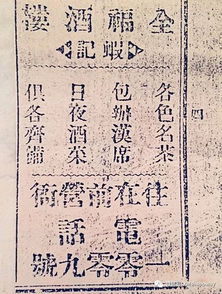 全福酒樓
蝦記
各色名茶
包辦漢席
日夜酒菜
俱各齊備
住在前營街
電
話
一零零九號
四